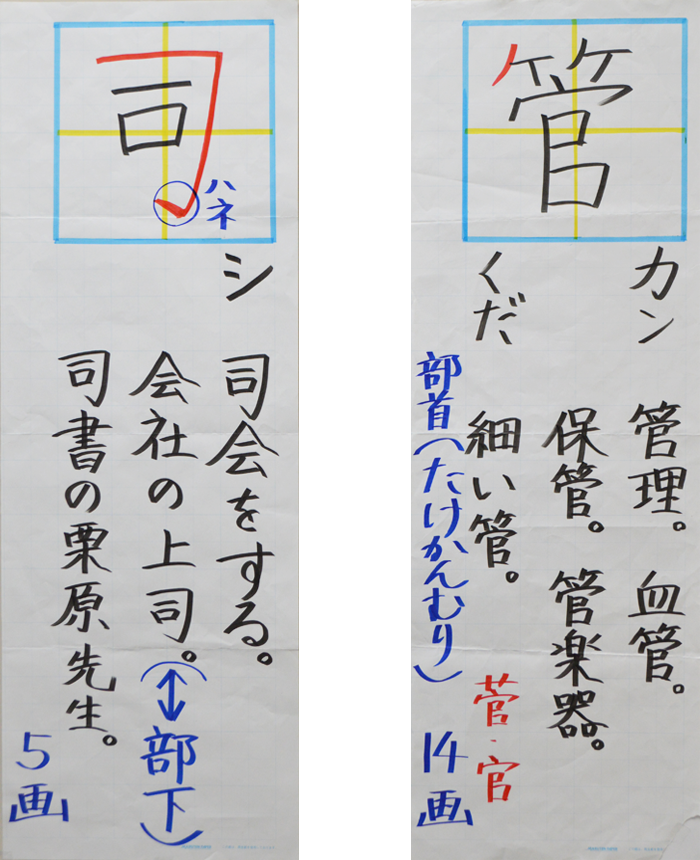 司
ハネ
シ
司会をする。
会社の上司。(↔部下)
司書の栗原先生。
5画
管
カン
管理。血管。
保管。管楽器。
くだ
細い管。
菅・官
部首(たけかんむり)
14画